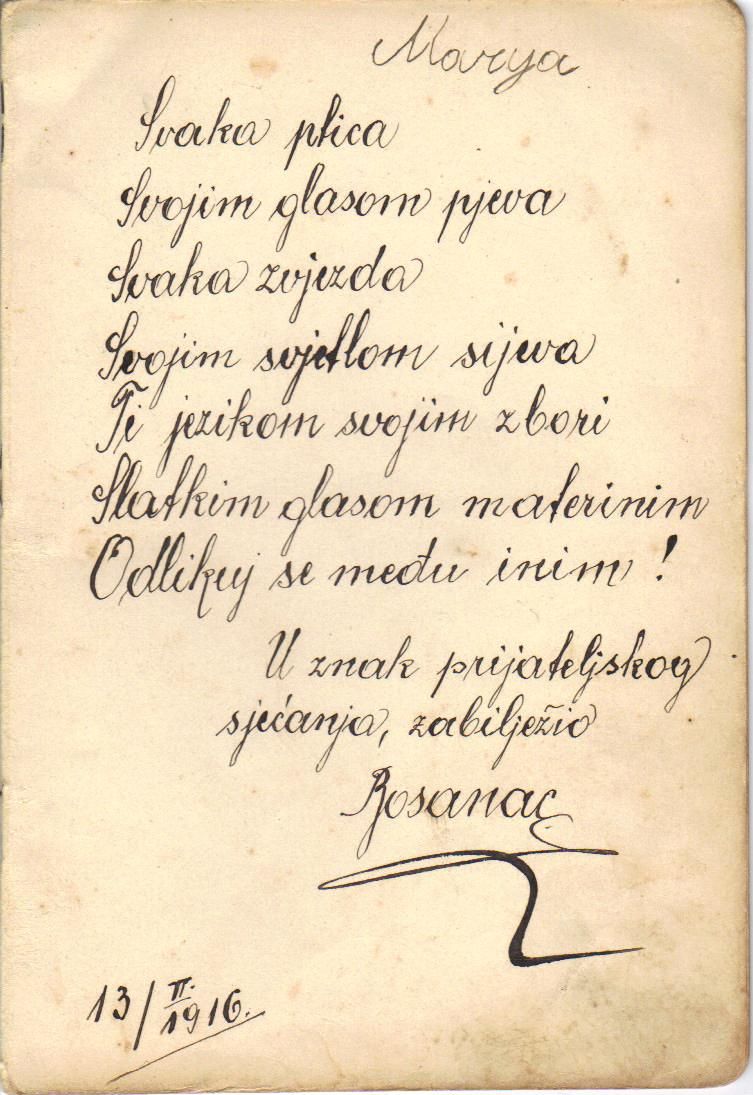 Marya
Svaka ptica
Svojim glasom pjeva
Svaka zvjezda
Svojim svjetlom sijeva
Ti jezikom svojim zbori
Slatkim glasom materinim
Odlikuj se među inim!
U znak prijateljskog
sjećanja, zabilježio
Bosanac
13/II. 1916.